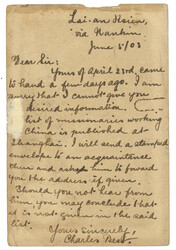 Lai-an Hsien,
via Nankin,
June 5/03
Dear Sir:
Yours of April 23rd, came
to hand a few days ago. I am
sorry that I cannot give you
desired information.
List of missionaries working
China is published at
Shanghai. I will send a stamped
envelope to an acquaintance
there and ask him to forward
you the address if given.
Should you not hear from
him you may conclude that
it is not given in the said
list.
Yours sincerely,
Charles Best.